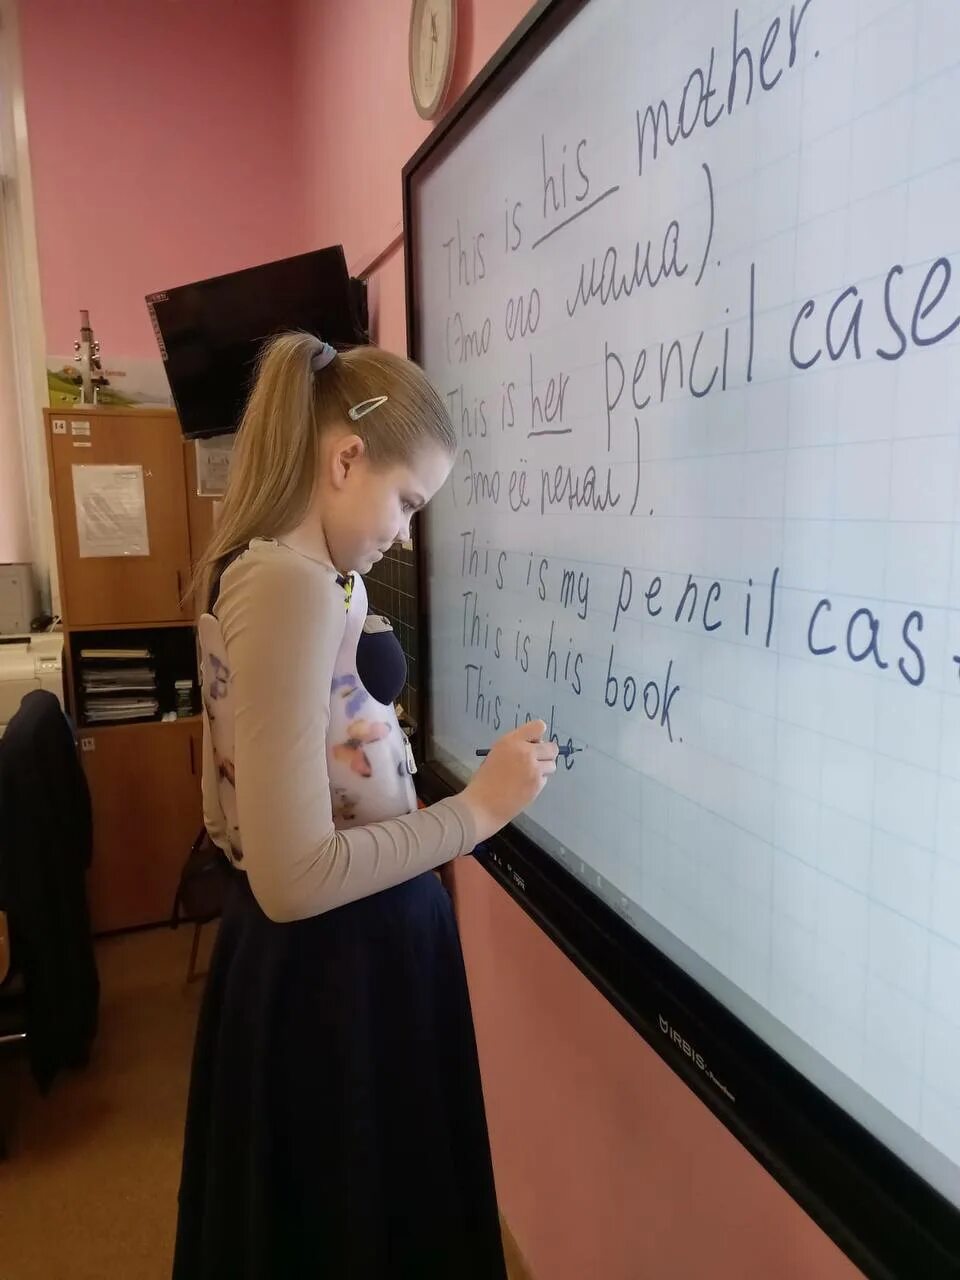 This is his mother.
(Это его мама).
This is her pencil case
(Это её пенал).
This is my pencil cas
This is his book.
This is he
IRBIS
14